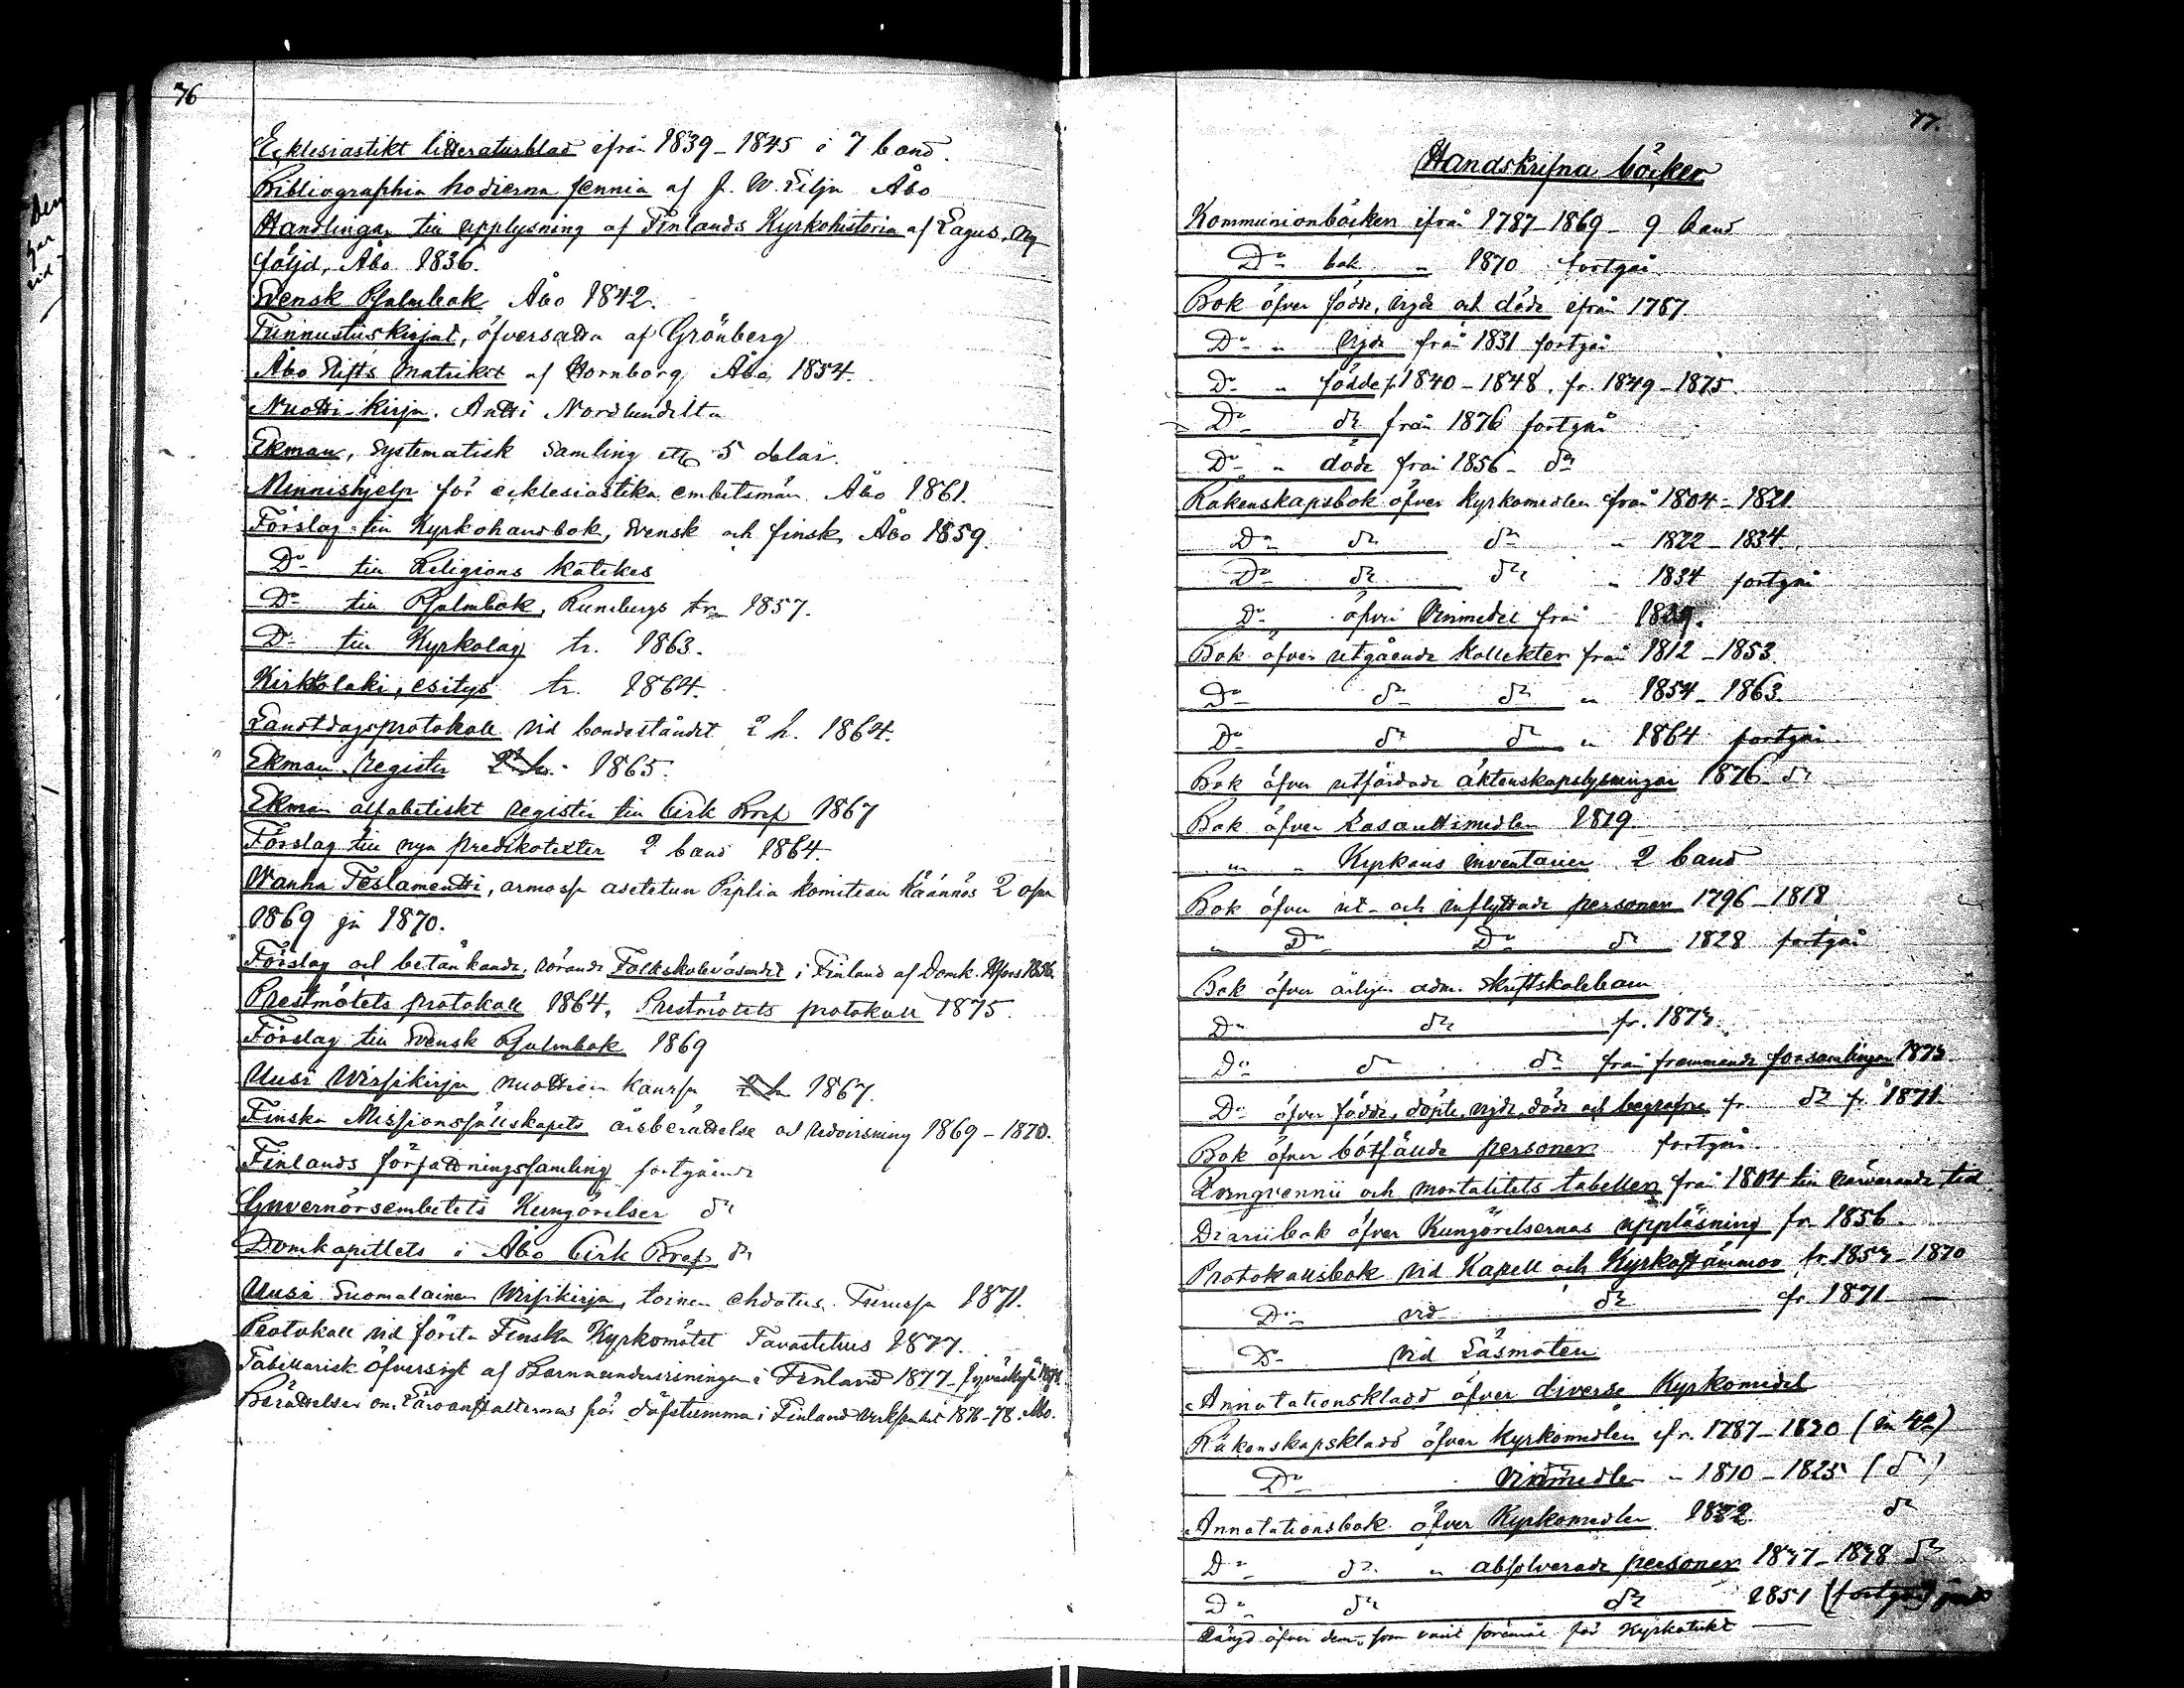 76
Ecklesiastikt litteraturblad ifrån 1839–1845 i 7 band.
Bibliographia hodierna fennia af J. W. Lilja Åbo
Handlingar till upplysning af Finlands Kyrkohistoria af Lagus, Ny
följd, Åbo 1836.
Svensk Psalmbok Åbo 1842.
Tunnustuskirjat, öfversatta af Grönberg
Åbo Stifts Matrikel af Hornborg, Åbo, 1854.
Nuotti-kirja. Antti Nordlundilta
Ekman, Systematisk Samling etc 5 delar.
Minnishjelp för ecklesiastika embetsmän Åbo 1861.
Förslag till Kyrkohandbok, Svensk och finsk, Åbo 1859.
Do till Religions katekes
Do till Psalmbok, Runebergs tr. 1857.
Do till Kyrkolag tr. 1863.
Kirkkolaki, esitys tr. 1864.
Landtdagsprotokoll vid bondeståndet 2 h. 1864.
Ekman register 1865.
Ekman alfabetiskt register till Cirk Bref 1867
Förslag till nya predikotexter 2 band 1864.
Wanha Testamentti, armossa asetetun Piplia komitean Käännös 2 osa
1869 ja 1870.
Förslag och betänkande, rörande Folkskoleväsendet i Finland af Domk. Hfors 1856.
Prestmötets protokoll 1864, Prestmötets protokoll 1875.
Förslag till Svensk Psalmbok 1869
Uusi Wirsikirja nuottien kanssa 1867.
Finska Missionssällskapets årsberättelse och redovisning 1869–1870.
Finlands författningssamling fortgående
Guvernörsembetets Kungörelser do
Domkapitlets i Åbo Cirk Bref do
Uusi Suomalainen Wirsikirja, toinen ehdotus. Turussa 1871.
Protokoll vid första Finska Kyrkomötet Tavastehus 1877.
Tabellarisk öfversigt af Barnaundervisningen i Finland 1877. Jyväskylä
Berättelser om Läroanstalterna för döfstumma i Finland 1876–78. Åbo.
77.
Handskrifna böcker
Kommunionböcker ifrån 1787–1869 – 9 band
Do bok " 1870 fortgår
Bok öfver födde, vigde och döde ifrån 1787.
Do " Vigde från 1831 fortgår
Do " födde fr. 1840–1848, fr. 1849–1875.
Do do från 1876 fortgår
Do " döde från 1856 – do
Räkenskapsbok öfver kyrkomedlen från 1804–1821
Do do do " 1822–1834.
Do do do " 1834 fortgår
Do öfver Vinmedel från
Bok öfver utgående Kollekter från 1812–1853.
Do do do " 1854–1863.
Do do do " 1864 fortgår
Bok öfver utfärdade äktenskapslysningar 1876 do
Bok öfver Lasarettsmedlen 1819.
" " Kyrkans inventarier 2 band
Bok öfver ut- och inflyttade personer 1796–1818
" Do Do do 1828 fortgår
Bok öfver årligen adm. skriftskolebarn
Do do fr. 1873.
Do do do från främmande församlingar 1873
Do öfver födde, döpte, vigde, döde och begrafne fr. do fr. 1871
Bok öfver botfällde personer fortgår.
och mortalitets tabeller från 1804 till närvarande tid
Diariibok öfver Kungörelsernas uppläsning fr. 1856.
Protokollsbok vid Kapell och Kyrkostämmor fr. 1857–1870
Do vid do fr. 1871 —
Do vid Läsmöten
Annotationskladd öfver diverse Kyrkomedel
Räkenskapskladd öfver kyrkomedlen ifr. 1787–1820 (in 4to)
Do Vinmedlen – 1810–1825 (do)
Annotationsbok öfver Kyrkomedlen 1822. do
Do do " absolverade personer 1837–1838 do
Do do do 1851
Längd öfver dem, som varit föremål för Kyrkotukt —